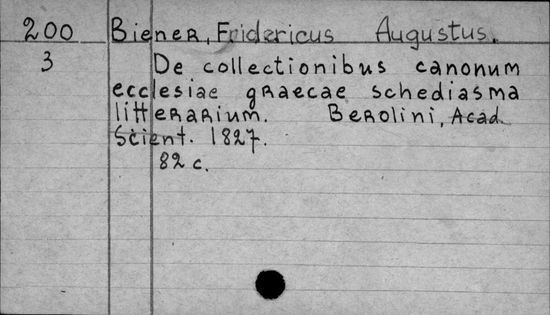 200 Biener, Fridericus Augustus.
3 De collectionibus canonum
ecclesiae graecae schediasma
litterarium. Berolini, Acad.
Scient. 1827.
82 c.